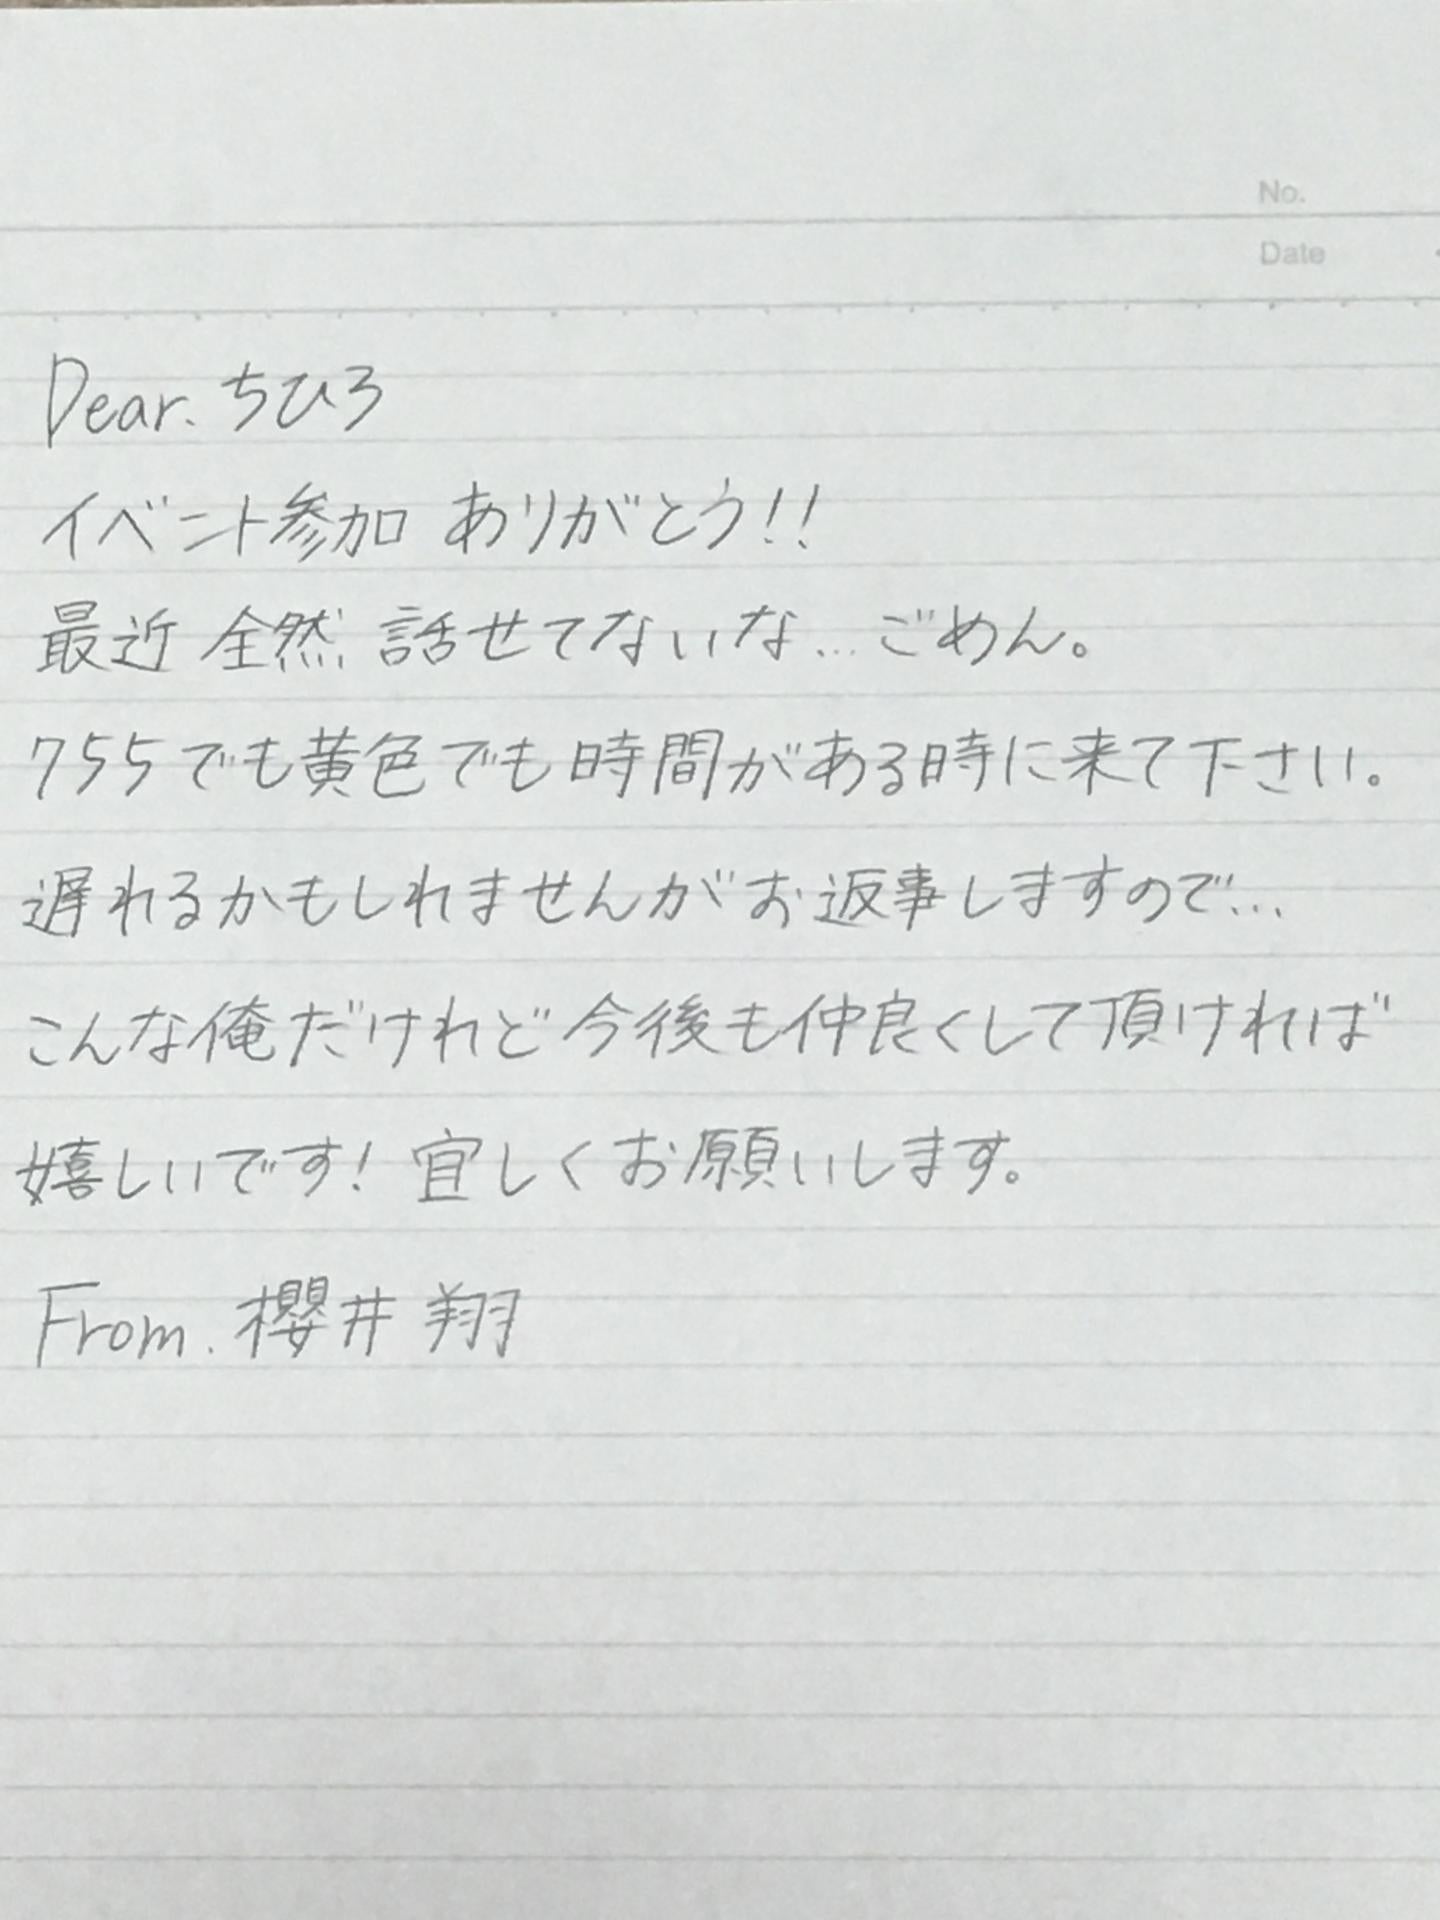 No.
Date
Dear. ちひろ
イベント参加 ありがとう!!
最近 全然 話せてないな...ごめん。
755でも黄色でも時間がある時に来て下さい。
遅れるかもしれませんがお返事しますので...
こんな俺だけれど今後も仲良くして頂ければ
嬉しいです! 宜しくお願いします。
From. 櫻井 翔